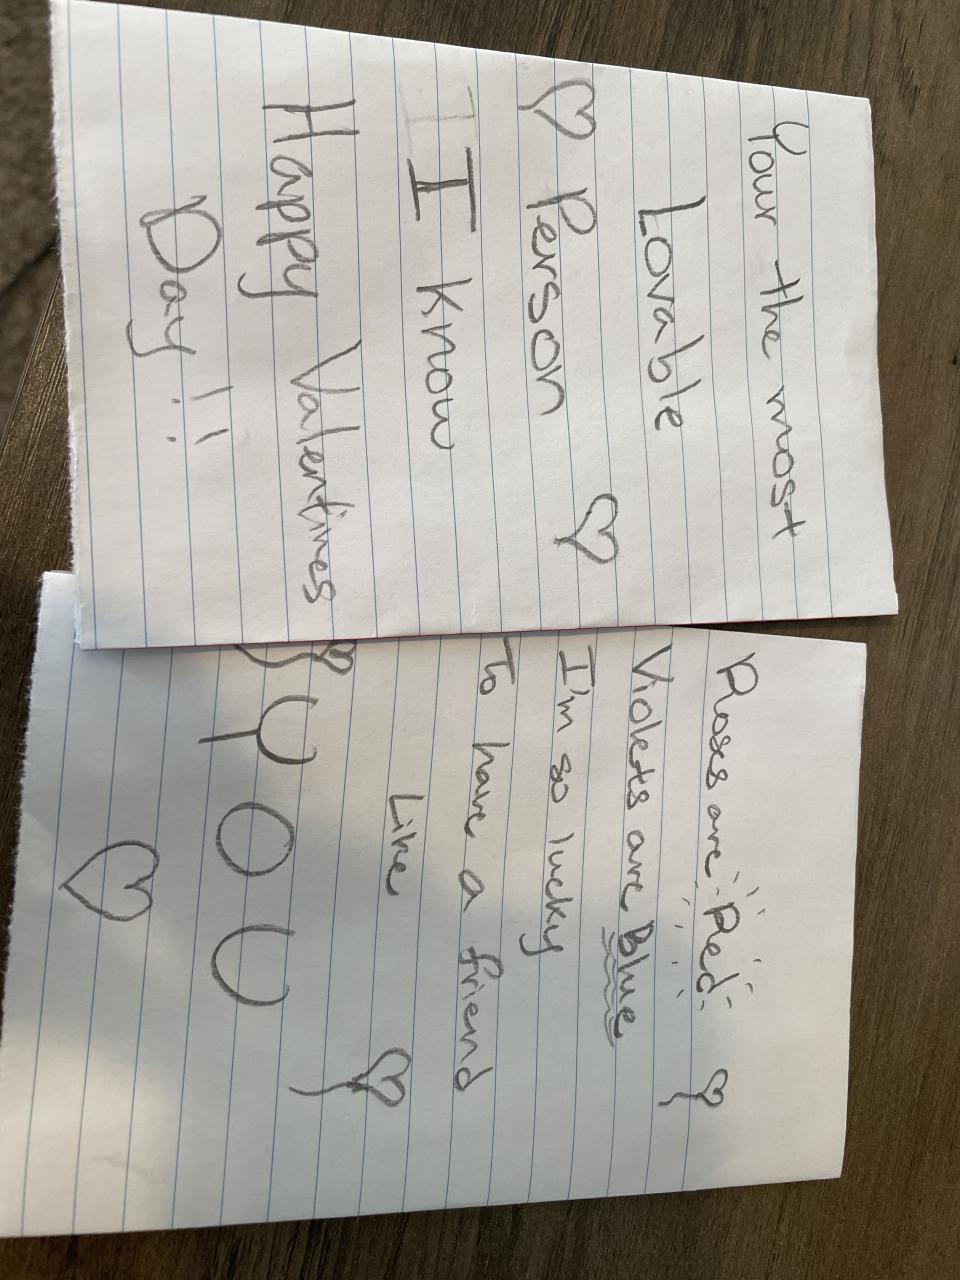 Your the most
Lovable
♡ Person ♡
I Know
Happy Valentines
Day!!
Roses are Red
Violets are Blue
I'm so lucky
To have a friend
Like
YOU